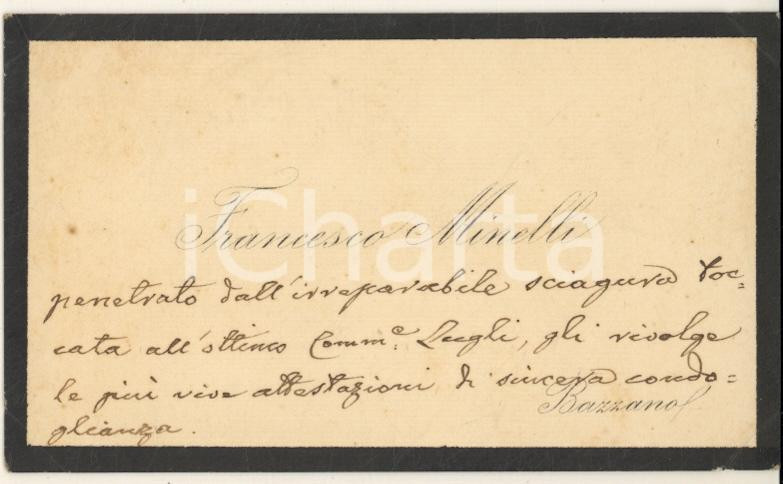 iCharta
Francesco Minelli
penetrato dall'irreparabile sciagura toc=
cata all'ottimo Comm.e Lugli, gli rivolge
le più vive attestazioni di sincera condo=
Bazzano
glianza.